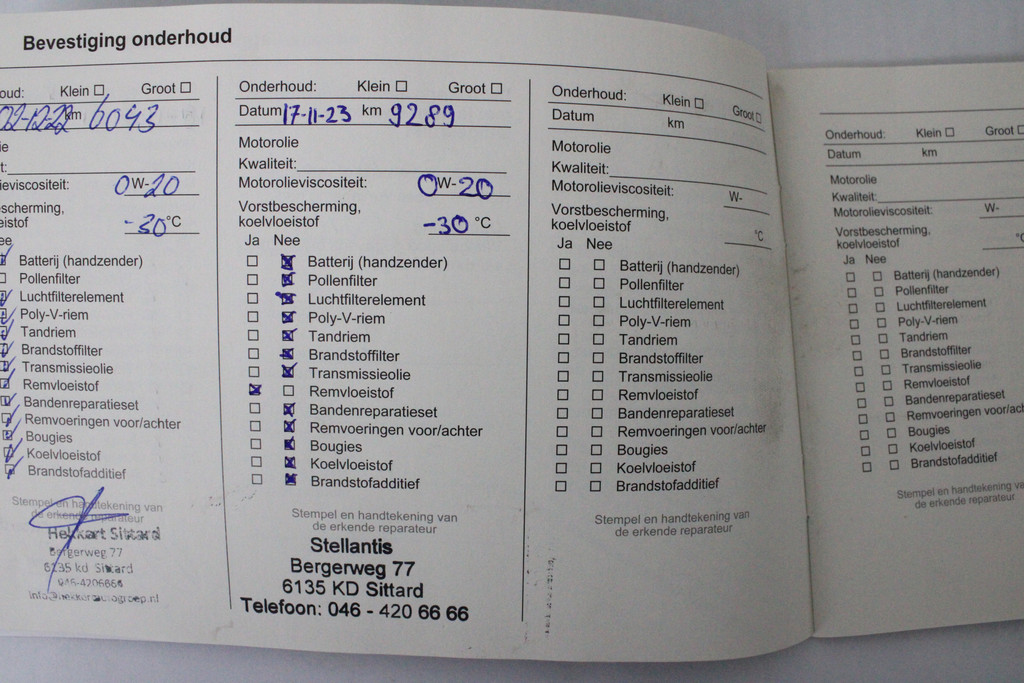 Bevestiging onderhoud
oud: Klein Groot
02-12-22 km 6043
ie
t:
ieviscositeit: 0W-20
escherming,
eistof -30 °C
ee
Batterij (handzender)
Pollenfilter
Luchtfilterelement
Poly-V-riem
Tandriem
Brandstoffilter
Transmissieolie
Remvloeistof
Bandenreparatieset
Remvoeringen voor/achter
Bougies
Koelvloeistof
Brandstofadditief
Stempel en handtekening van
de erkende reparateur
Hekkert Sittard
Bergerweg 77
6135 kd Sittard
046-4206666
Onderhoud: Klein Groot
Datum 17-11-23 km 9289
Motorolie
Kwaliteit:
Motorolieviscositeit: 0W-20
Vorstbescherming,
koelvloeistof -30 °C
Ja Nee
Batterij (handzender)
Pollenfilter
Luchtfilterelement
Poly-V-riem
Tandriem
Brandstoffilter
Transmissieolie
Remvloeistof
Bandenreparatieset
Remvoeringen voor/achter
Bougies
Koelvloeistof
Brandstofadditief
Stempel en handtekening van
de erkende reparateur
Stellantis
Bergerweg 77
6135 KD Sittard
Telefoon: 046 - 420 66 66
Onderhoud: Klein Groot
Datum km
Motorolie
Kwaliteit:
Motorolieviscositeit: W-
Vorstbescherming,
koelvloeistof °C
Ja Nee
Batterij (handzender)
Pollenfilter
Luchtfilterelement
Poly-V-riem
Tandriem
Brandstoffilter
Transmissieolie
Remvloeistof
Bandenreparatieset
Remvoeringen voor/achter
Bougies
Koelvloeistof
Brandstofadditief
Stempel en handtekening van
de erkende reparateur
Onderhoud: Klein Groot
Datum km
Motorolie
Kwaliteit:
Motorolieviscositeit: W-
Vorstbescherming,
koelvloeistof °C
Ja Nee
Batterij (handzender)
Pollenfilter
Luchtfilterelement
Poly-V-riem
Tandriem
Brandstoffilter
Transmissieolie
Remvloeistof
Bandenreparatieset
Remvoeringen voor/acht
Bougies
Koelvloeistof
Brandstofadditief
Stempel en handtekening v
de erkende reparateur